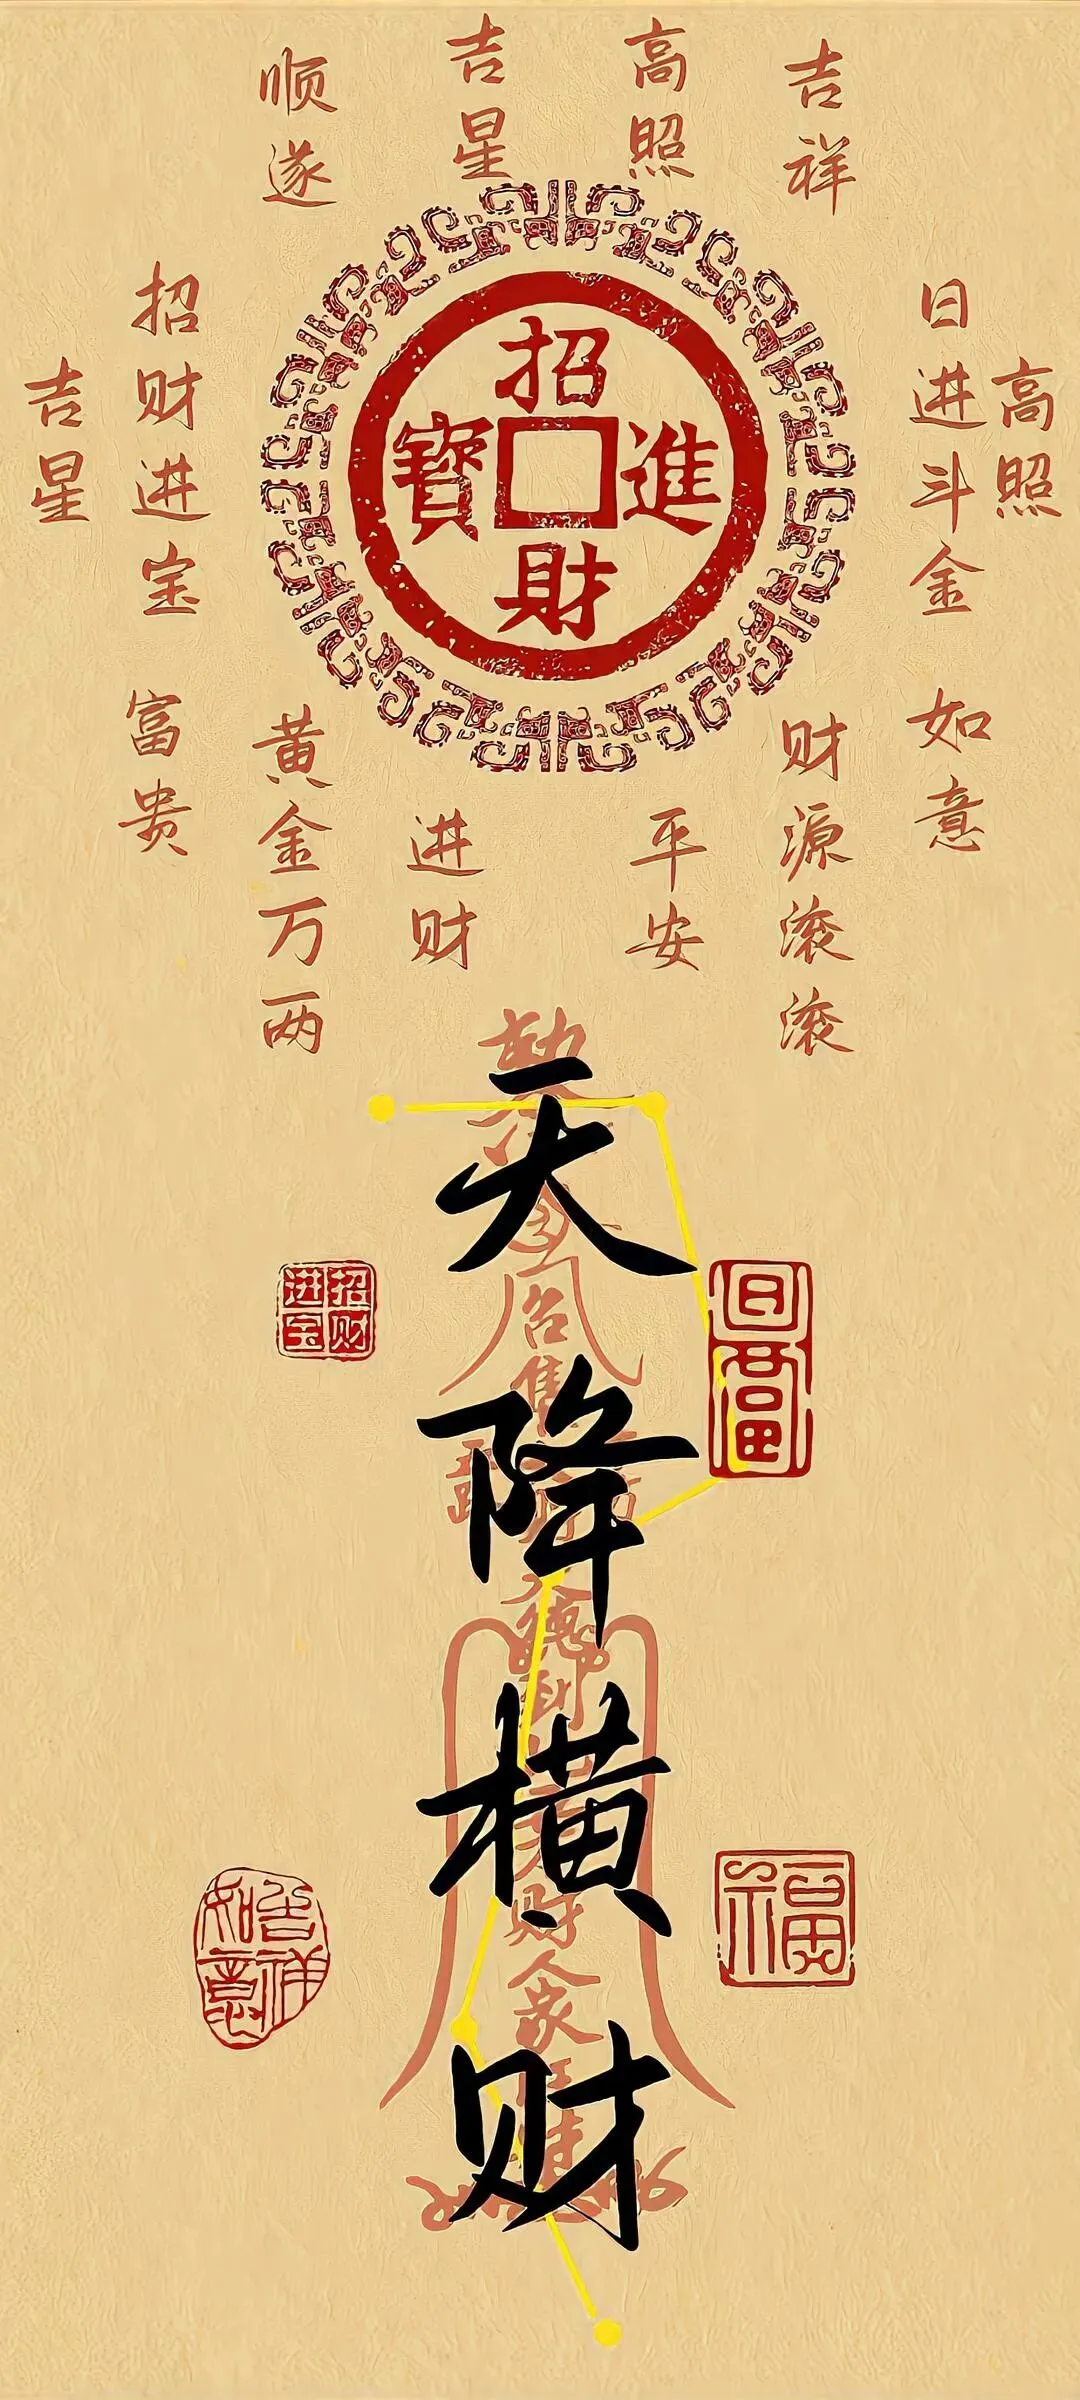 顺遂
吉星
高照
吉祥
吉星
招财进宝
日进斗金
高照
招進財寶
富贵
黄金万两
进财
平安
财源滚滚
如意
天降横财
招财进宝
日富
吉祥如意
福